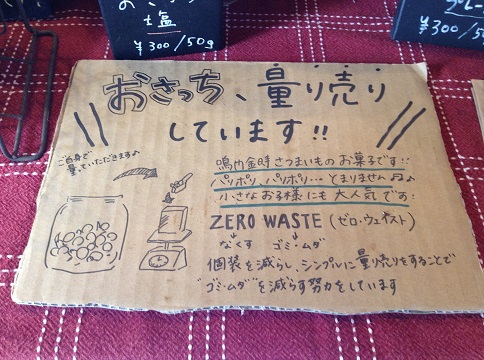 塩
¥300/50g
プレー
¥300/50g
おさっち、量り売り
しています!!
ご自身で
量っていただきます♪
鳴門金時さつまいものお菓子です!!
パリポリ、パリポリ…とまりません♫♪
小さなお子様にも大人気です!
ZERO WASTE (ゼロ・ウェイスト)
なくす ゴミ・ムダ
個装を減らし、シンプルに量り売りをすることで
"ゴミ・ムダ"を減らす努力をしています